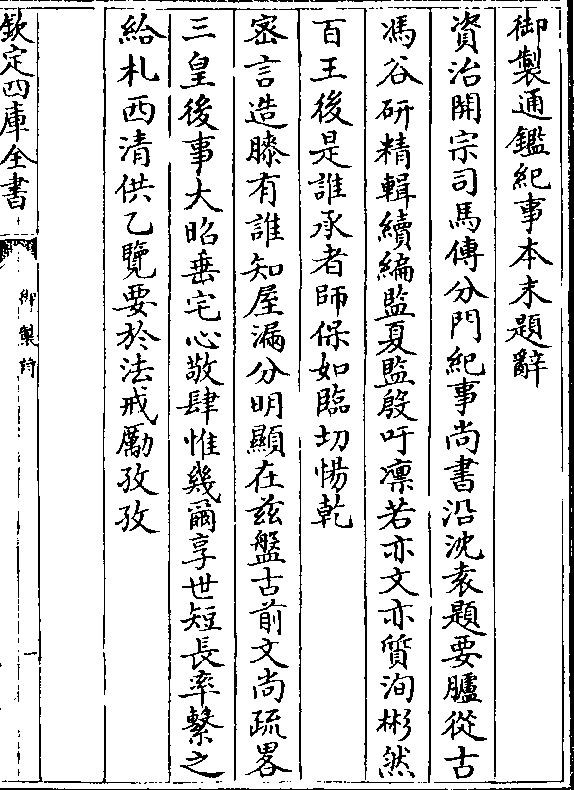 御製通鑑紀事本末題辭
資治開宗司馬傳分門紀事尚書沿沈袁題要臚從古
馮谷研精輯續編監夏監殷吁凛若亦文亦質洵彬然
百王後是誰承者師保如臨切惕乾
密言造膝有誰知屋漏分明顯在兹盤古前文尚疏畧
三皇後事大昭垂宅心敬肆惟幾爾享世短長率繫之
給札西清供乙覽要於法戒勵孜孜
欽定四庫全書
御製詩
一